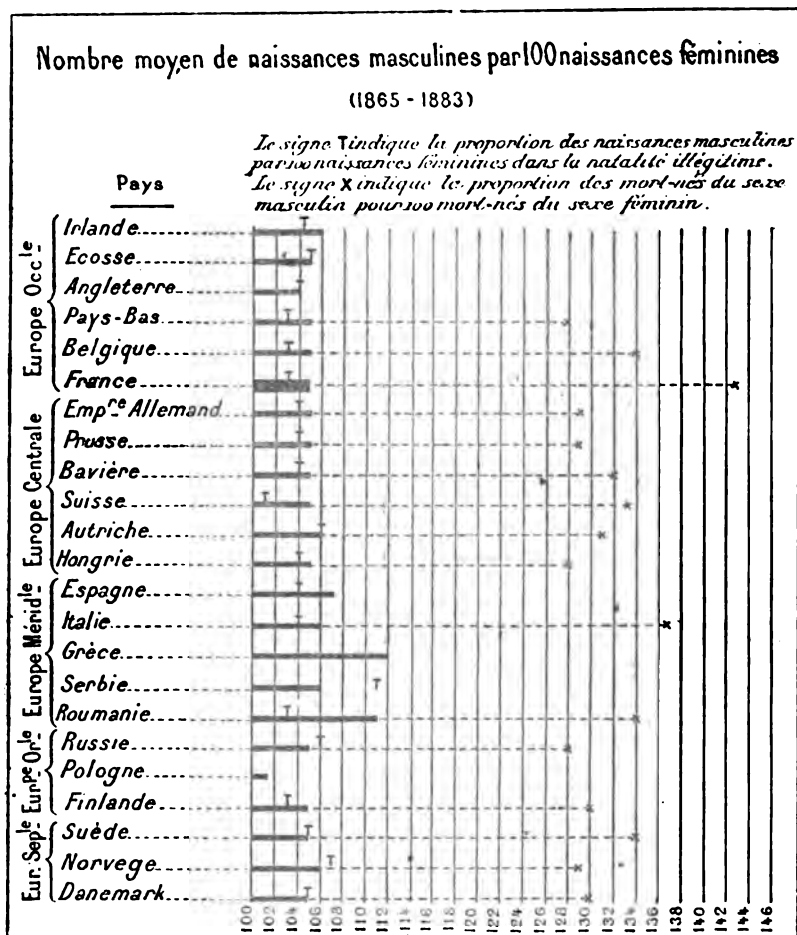 Nombre moyen de naissances masculines par 100 naissances féminines
(1865 - 1883)
Le signe T indique la proportion des naissances masculines
par 100 naissances féminines dans la natalité illégitime.
Le signe X indique le proportion des mort-nés du sexe
masculin pour 100 mort-nés du sexe féminin.
Pays
Europe Occ.le
Irlande
Ecosse
Angleterre
Pays-Bas
Belgique
France
Europe Centrale
Emp.re Allemand
Prusse
Bavière
Suisse
Autriche
Hongrie
Europe Mérid.le
Espagne
Italie
Grèce
Serbie
Roumanie
Eur.pe Or.le
Russie
Pologne
Finlande
Eur. Sep.le
Suède
Norvege
Danemark
100 102 104 106 108 110 112 114 116 118 120 122 124 126 128 130 132 134 136 138 140 142 144 146